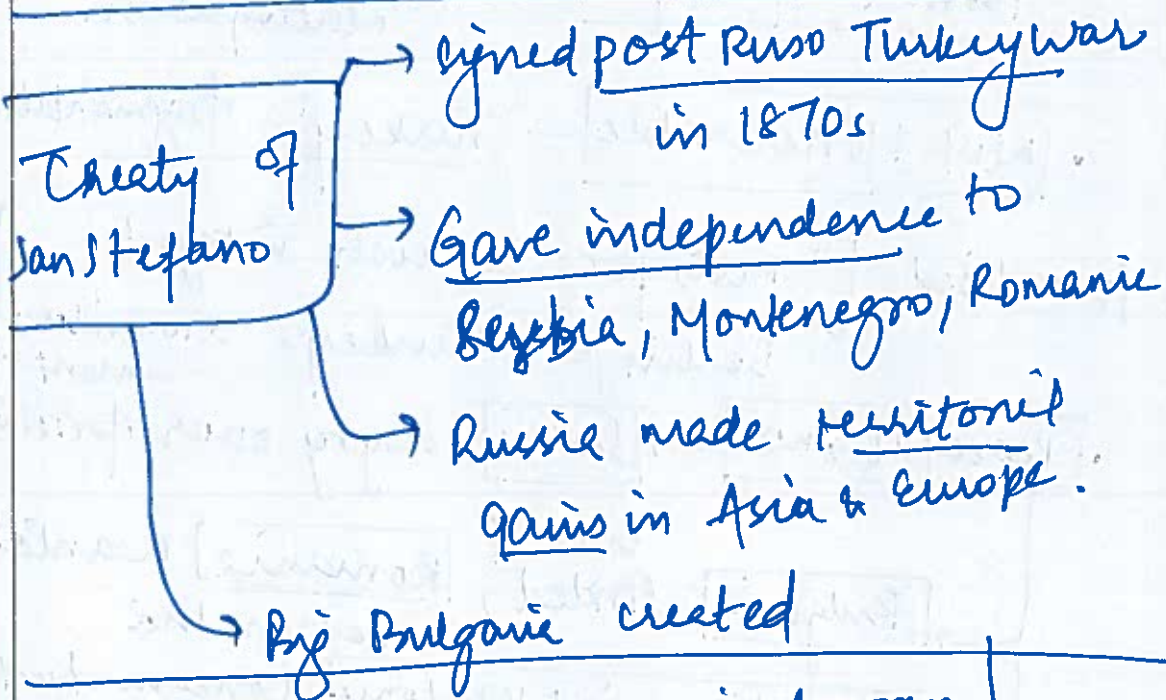 Treaty of
San Stefano
→ signed post Ruso Turkey war
in 1870s
→ Gave independence to
Serbia, Montenegro, Romania
→ Russia made territorial
gains in Asia & Europe.
→ Big Bulgaria created